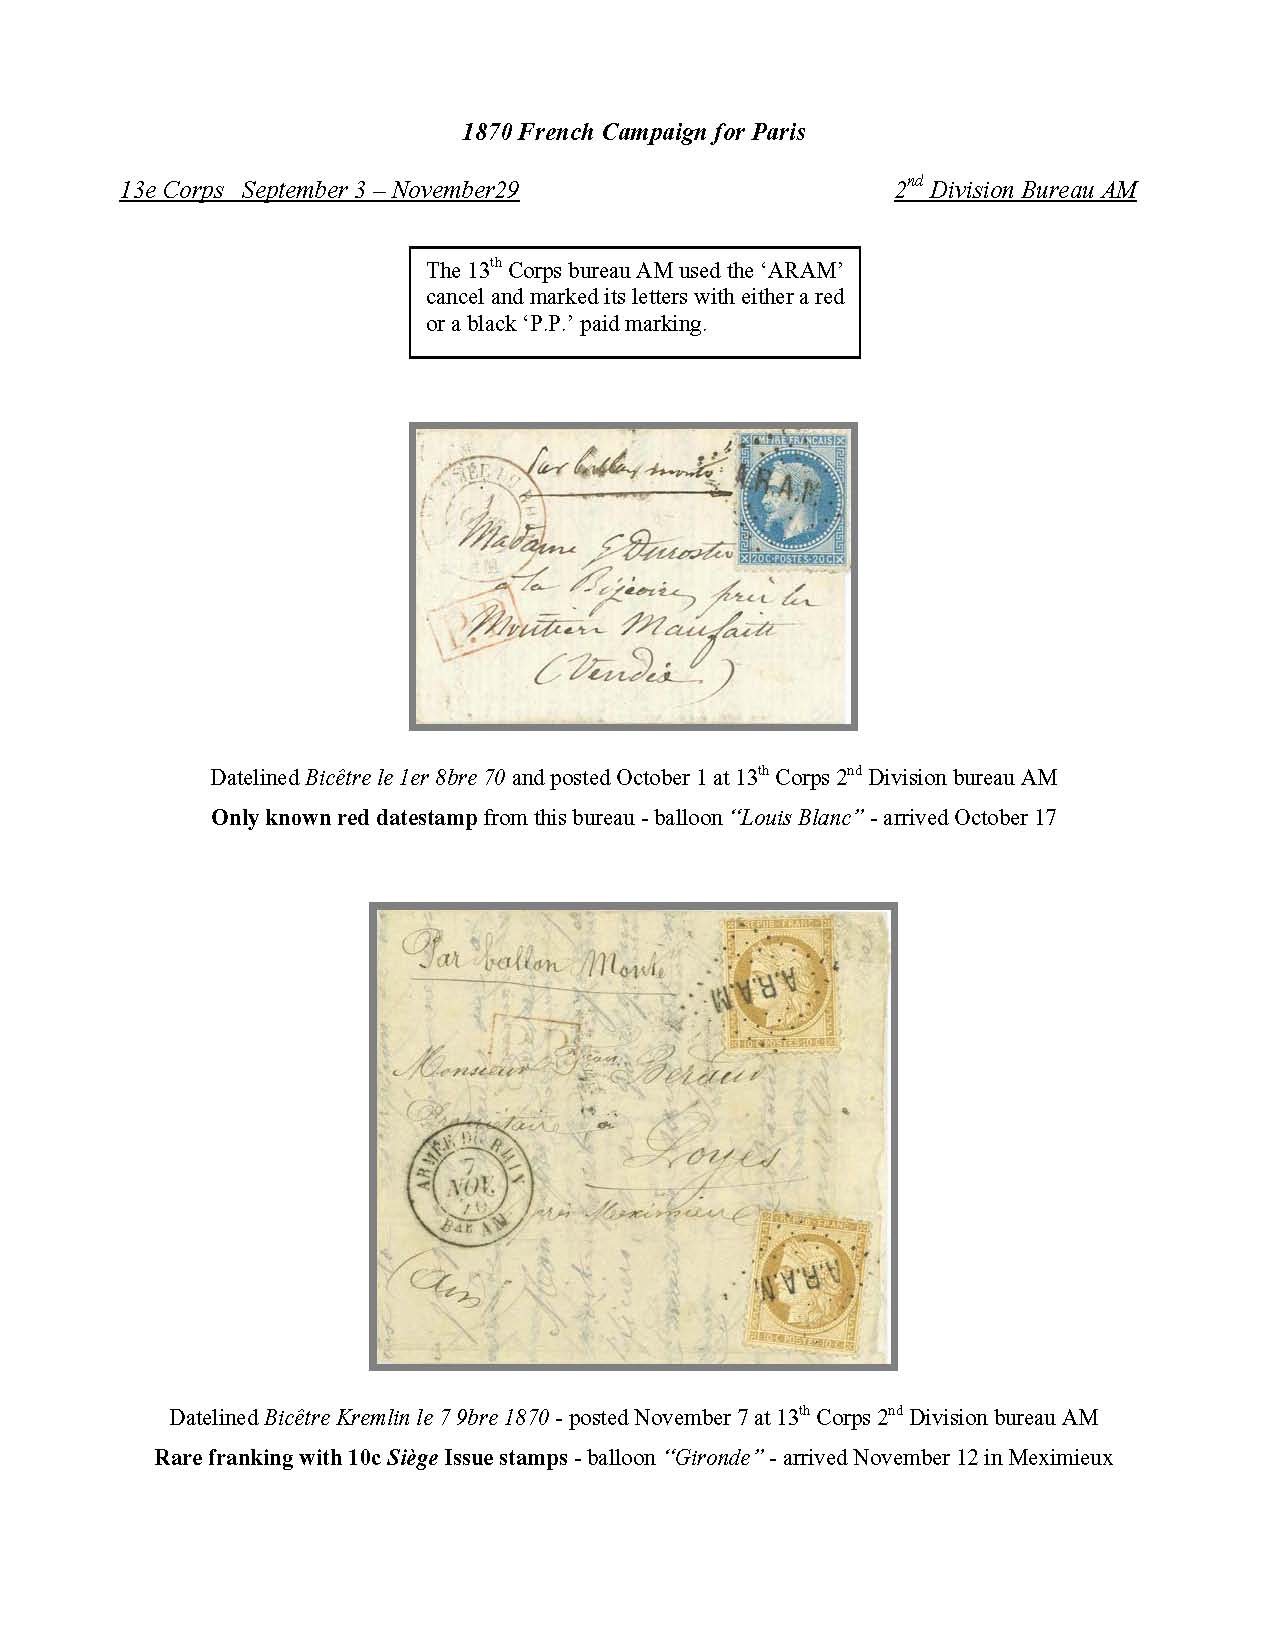 1870 French Campaign for Paris
13e Corps   September 3 – November29
2nd Division Bureau AM
The 13th Corps bureau AM used the ‘ARAM’
cancel and marked its letters with either a red
or a black ‘P.P.’ paid marking.
Par ballon monté
EMPIRE FRANCAIS
A.R.A.M
20C·POSTES·20C
1
Madame G Durostu
à la
près les
Moutiers Maufaits
P.P
(Vendée)
Datelined Bicêtre le 1er 8bre 70 and posted October 1 at 13th Corps 2nd Division bureau AM
Only known red datestamp from this bureau - balloon “Louis Blanc” - arrived October 17
REPUB·FRANC·
Par ballon Monté
A.R.A.M
10·C·POSTES·10·C
Monsieur Jean Beraud
Propriétaire à
Loyes
ARMÉE DU RHIN
7
NOV.
70
Bau AM
près Meximieux
REPUB·FRANC·
A.R.A.M
(Ain)
10·C·POSTES·10·C
Datelined Bicêtre Kremlin le 7 9bre 1870 - posted November 7 at 13th Corps 2nd Division bureau AM
Rare franking with 10c Siège Issue stamps - balloon “Gironde” - arrived November 12 in Meximieux